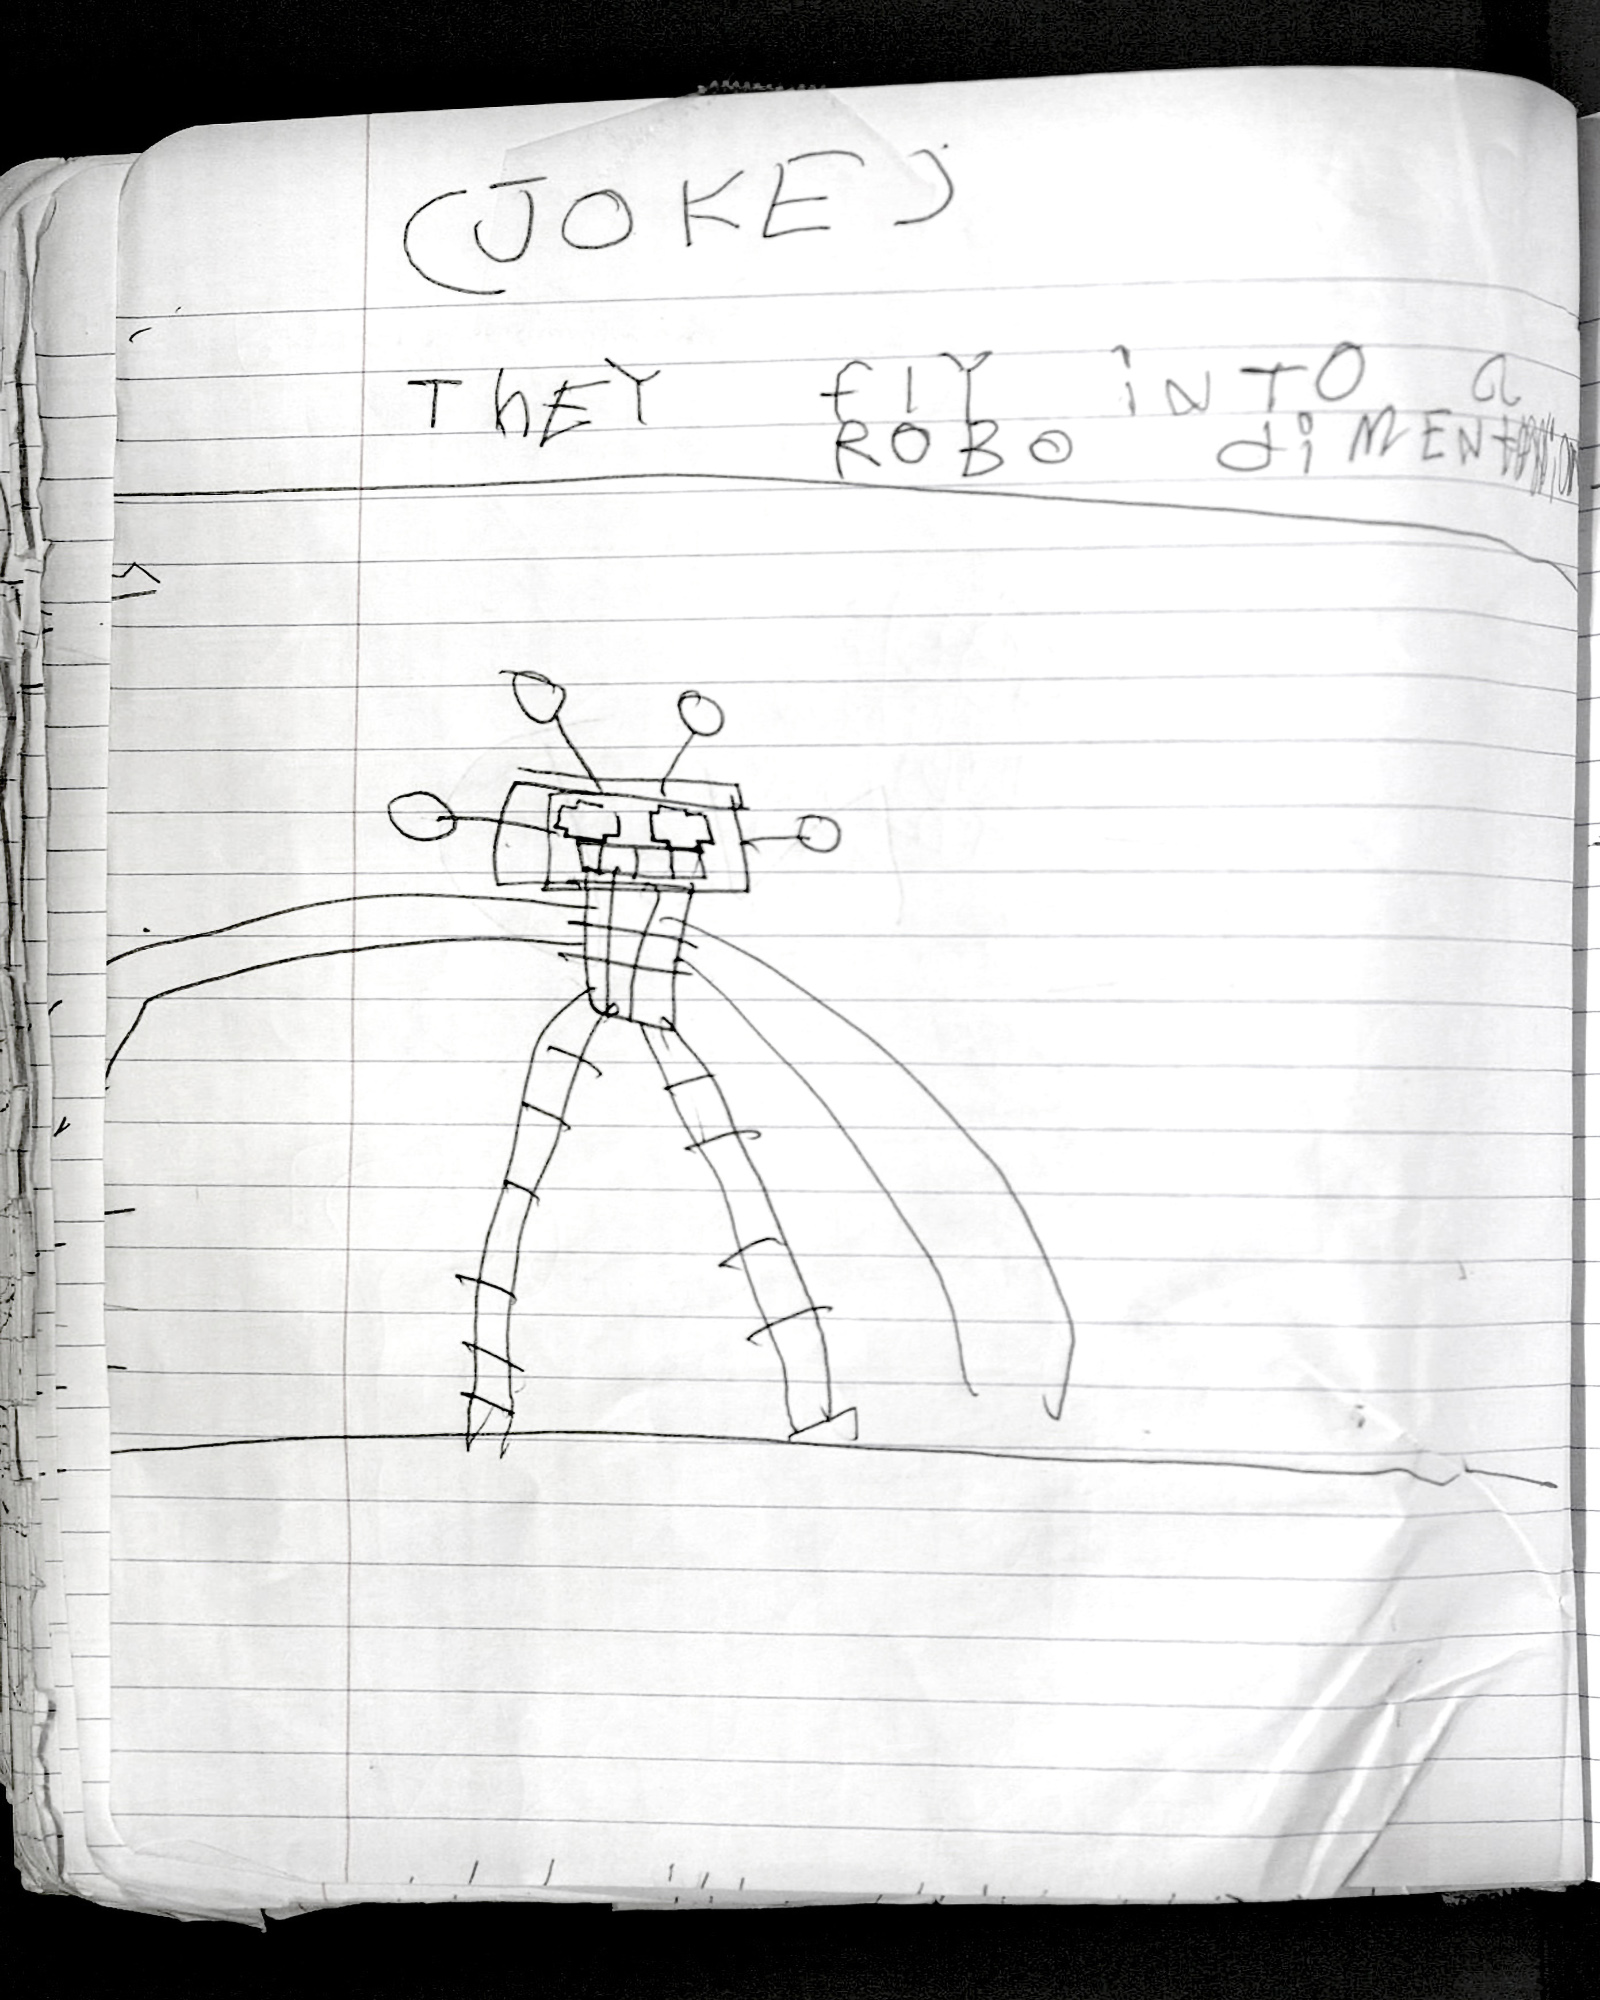 (JOKE)
ThEY flY iNTO a
ROBO